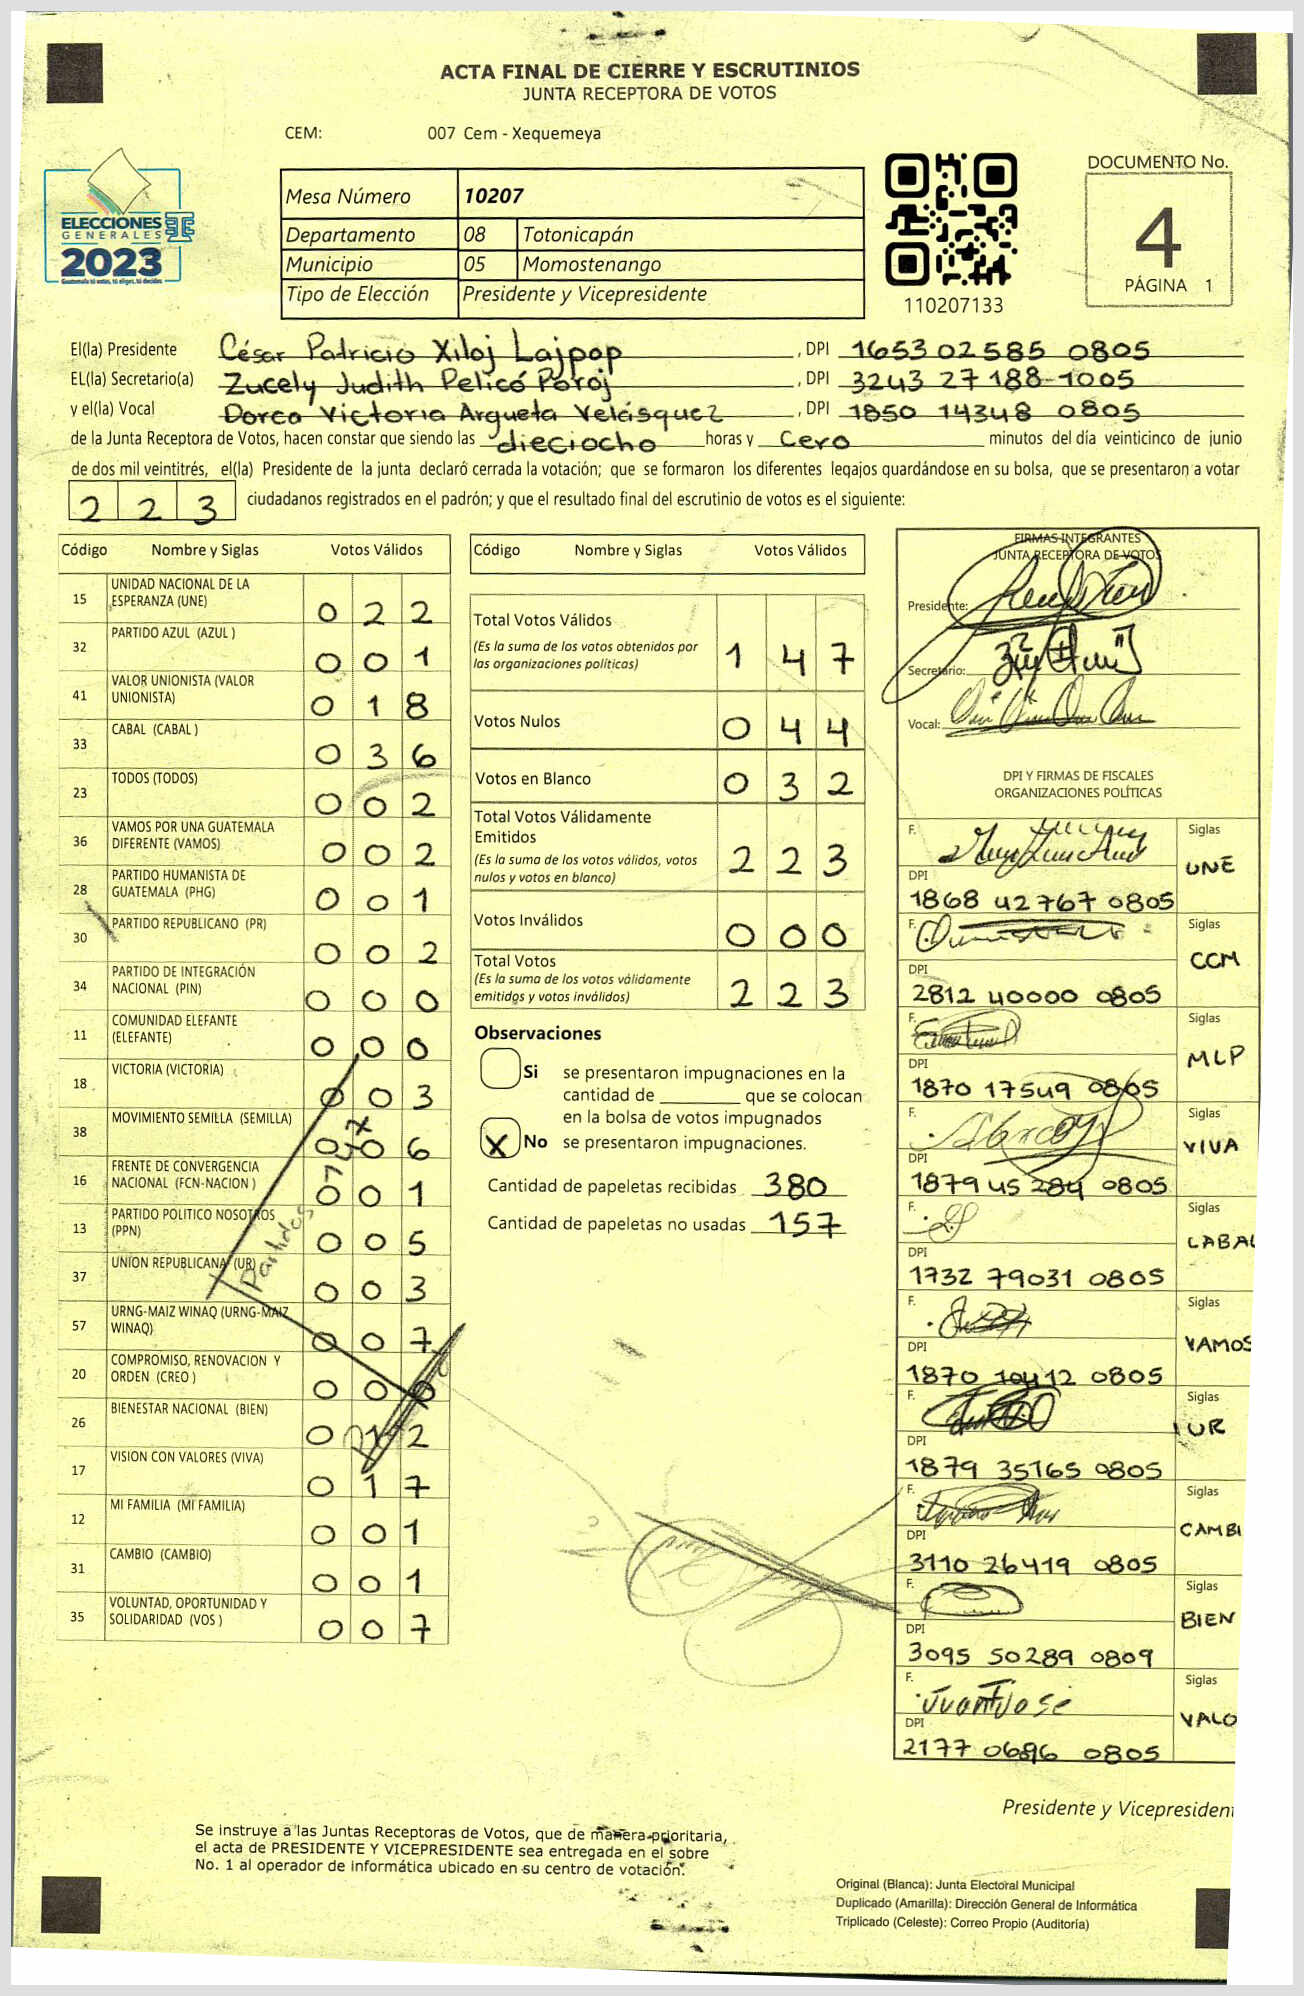 ACTA FINAL DE CIERRE Y ESCRUTINIOS
JUNTA RECEPTORA DE VOTOS
CEM: 007 Cem - Xequemeya
ELECCIONES
GENERALES
2023
Guatemala tú votas, tú eliges, tú decides
Mesa Número 10207
Departamento 08 Totonicapán
Municipio 05 Momostenango
Tipo de Elección Presidente y Vicepresidente
110207133
DOCUMENTO No.
4
PÁGINA 1
El(la) Presidente César Patricio Xiloj Lajpop , DPI 1653 02585 0805
EL(la) Secretario(a) Zucely Judith Pelicó Poroj , DPI 3243 27188 1005
y el(la) Vocal Dorca Victoria Argueta Velásquez , DPI 1850 14348 0805
de la Junta Receptora de Votos, hacen constar que siendo las dieciocho horas y Cero minutos del día veinticinco de junio
de dos mil veintitrés, el(la) Presidente de la junta declaró cerrada la votación; que se formaron los diferentes legajos guardándose en su bolsa, que se presentaron a votar
2 2 3 ciudadanos registrados en el padrón; y que el resultado final del escrutinio de votos es el siguiente:
Código Nombre y Siglas Votos Válidos
15 UNIDAD NACIONAL DE LA
ESPERANZA (UNE) 0 2 2
32 PARTIDO AZUL (AZUL ) 0 0 1
41 VALOR UNIONISTA (VALOR
UNIONISTA) 0 1 8
33 CABAL (CABAL ) 0 3 6
23 TODOS (TODOS) 0 0 2
36 VAMOS POR UNA GUATEMALA
DIFERENTE (VAMOS) 0 0 2
28 PARTIDO HUMANISTA DE
GUATEMALA (PHG) 0 0 1
30 PARTIDO REPUBLICANO (PR) 0 0 2
34 PARTIDO DE INTEGRACIÓN
NACIONAL (PIN) 0 0 0
11 COMUNIDAD ELEFANTE
(ELEFANTE) 0 0 0
18 VICTORIA (VICTORIA) 0 0 3
38 MOVIMIENTO SEMILLA (SEMILLA) 0 0 6
16 FRENTE DE CONVERGENCIA
NACIONAL (FCN-NACION ) 0 0 1
13 PARTIDO POLITICO NOSOTROS
(PPN) 0 0 5
37 UNION REPUBLICANA (UR) 0 0 3
57 URNG-MAIZ WINAQ (URNG-MAIZ
WINAQ) 0 0 7
20 COMPROMISO, RENOVACION Y
ORDEN (CREO ) 0 0 0
26 BIENESTAR NACIONAL (BIEN) 0 1 2
17 VISION CON VALORES (VIVA) 0 1 7
12 MI FAMILIA (MI FAMILIA) 0 0 1
31 CAMBIO (CAMBIO) 0 0 1
35 VOLUNTAD, OPORTUNIDAD Y
SOLIDARIDAD (VOS ) 0 0 7
Partidos
Código Nombre y Siglas Votos Válidos
Total Votos Válidos
(Es la suma de los votos obtenidos por
las organizaciones políticas) 1 4 7
Votos Nulos 0 4 4
Votos en Blanco 0 3 2
Total Votos Válidamente
Emitidos
(Es la suma de los votos válidos, votos
nulos y votos en blanco) 2 2 3
Votos Inválidos 0 0 0
Total Votos
(Es la suma de los votos válidamente
emitidos y votos inválidos) 2 2 3
Observaciones
Si se presentaron impugnaciones en la
cantidad de ________ que se colocan
en la bolsa de votos impugnados
X No se presentaron impugnaciones.
Cantidad de papeletas recibidas 380
Cantidad de papeletas no usadas 157
FIRMAS INTEGRANTES
JUNTA RECEPTORA DE VOTOS
Presidente:
Secretario:
Vocal:
DPI Y FIRMAS DE FISCALES
ORGANIZACIONES POLÍTICAS
F. Siglas
UNE
DPI
1868 42767 0805
F. Siglas
CCM
DPI
2812 40000 0805
F. Siglas
MLP
DPI
1870 17549 0805
F. Siglas
VIVA
DPI
1879 45 284 0805
F. Siglas
CABAL
DPI
1732 79031 0805
F. Siglas
VAMOS
DPI
1870 10412 0805
F. Siglas
UR
DPI
1879 35165 0805
F. Siglas
CAMBI
DPI
3110 26419 0805
F. Siglas
BIEN
DPI
3095 50289 0809
F. Juan José Siglas
VALO
DPI
2177 0696 0805
Presidente y Vicepresiden
Se instruye a las Juntas Receptoras de Votos, que de manera prioritaria,
el acta de PRESIDENTE Y VICEPRESIDENTE sea entregada en el sobre
No. 1 al operador de informática ubicado en su centro de votación.
Original (Blanca): Junta Electoral Municipal
Duplicado (Amarilla): Dirección General de Informática
Triplicado (Celeste): Correo Propio (Auditoría)